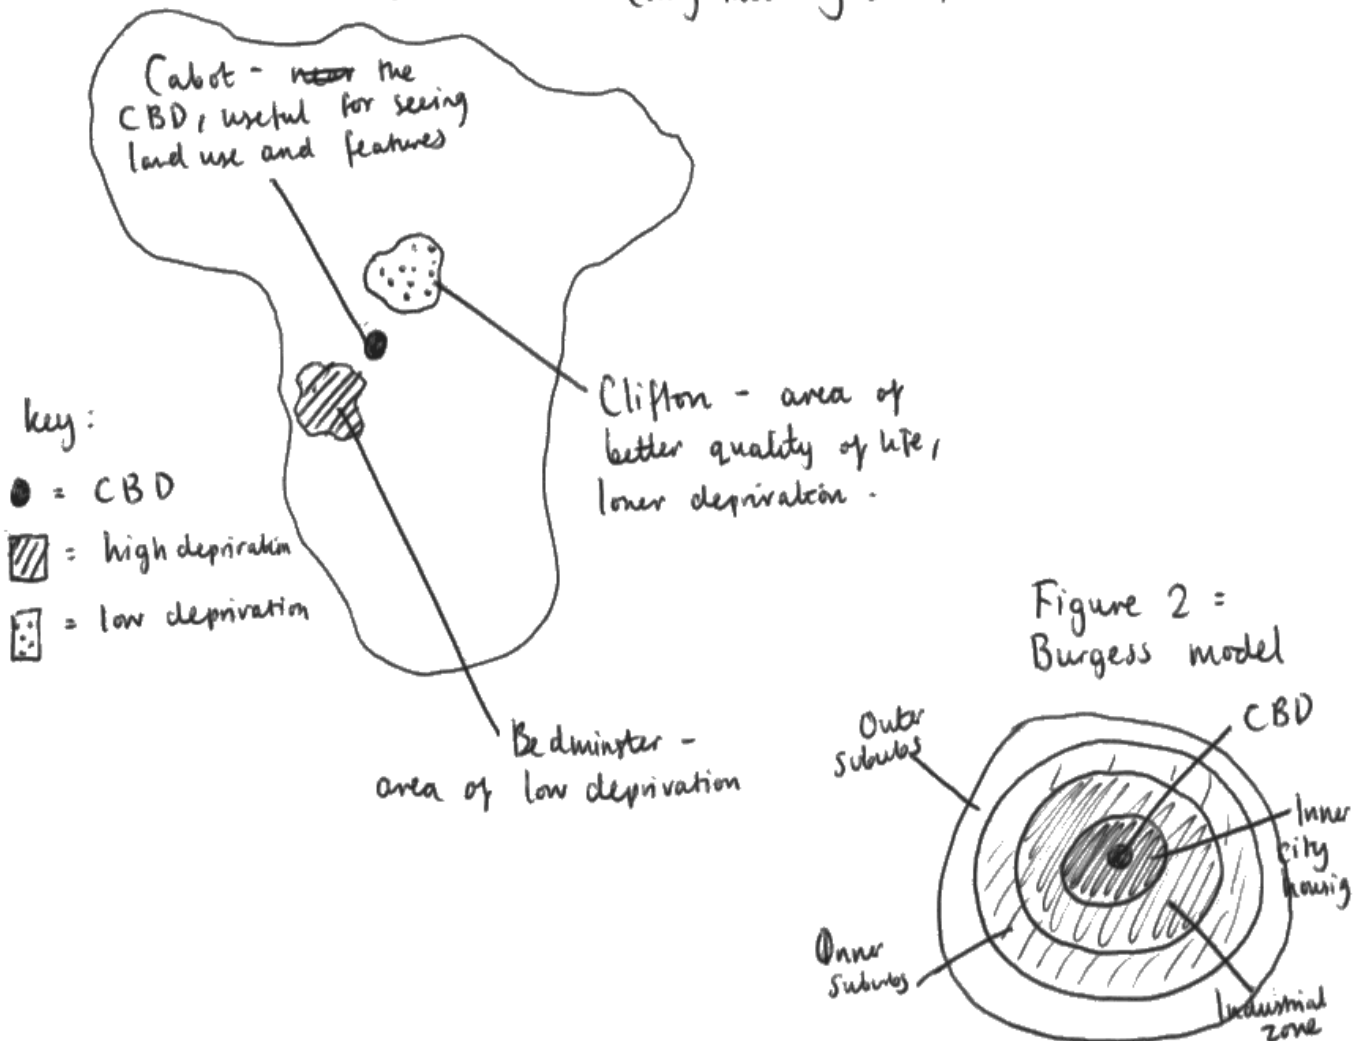 Cabot - near the
CBD, useful for seeing
land use and features
Clifton - area of
better quality of life,
lower deprivation.
key:
= CBD
= high deprivation
= low deprivation
Bedminster -
area of low deprivation
Figure 2 =
Burgess model
CBD
Outer
suburbs
Inner
city
housig
Inner
suburbs
Industrial
zone